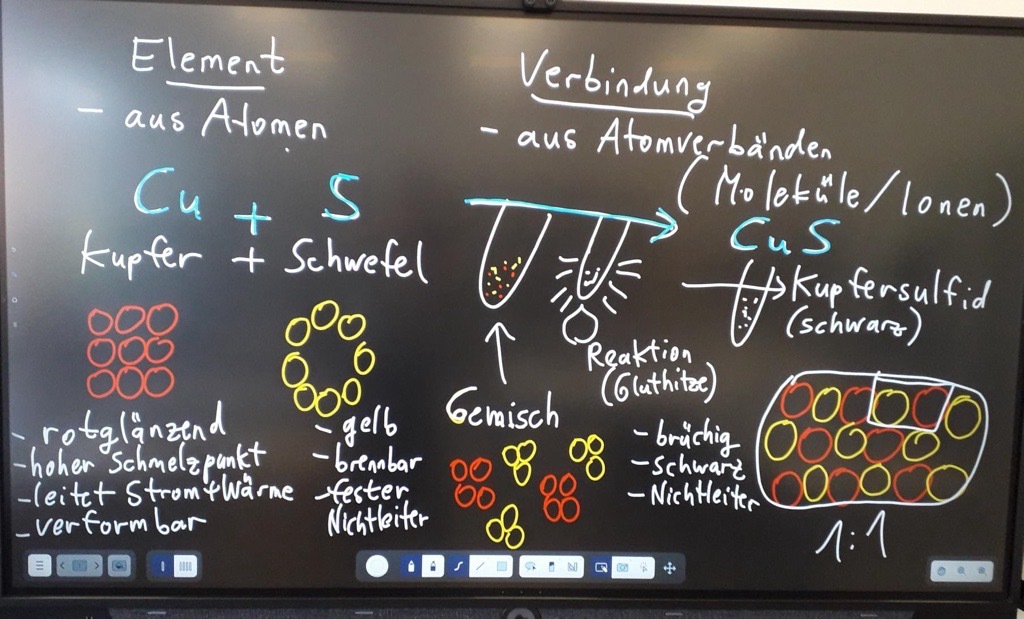 Element
- aus Atomen
Cu + S
Kupfer + Schwefel
- rotglänzend
- hoher Schmelzpunkt
- leitet Strom+Wärme
- verformbar
- gelb
- brennbar
- fester
Nichtleiter
Verbindung
- aus Atomverbänden
(Moleküle/Ionen)
CuS
Kupfersulfid
(schwarz)
Reaktion
(Gluthitze)
Gemisch
- brüchig
- Schwarz
- Nichtleiter
1:1